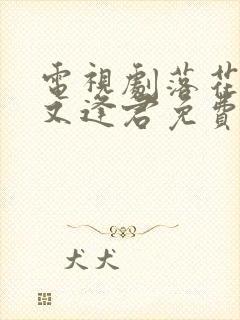 電視劇落花
又逢君免費
犬犬